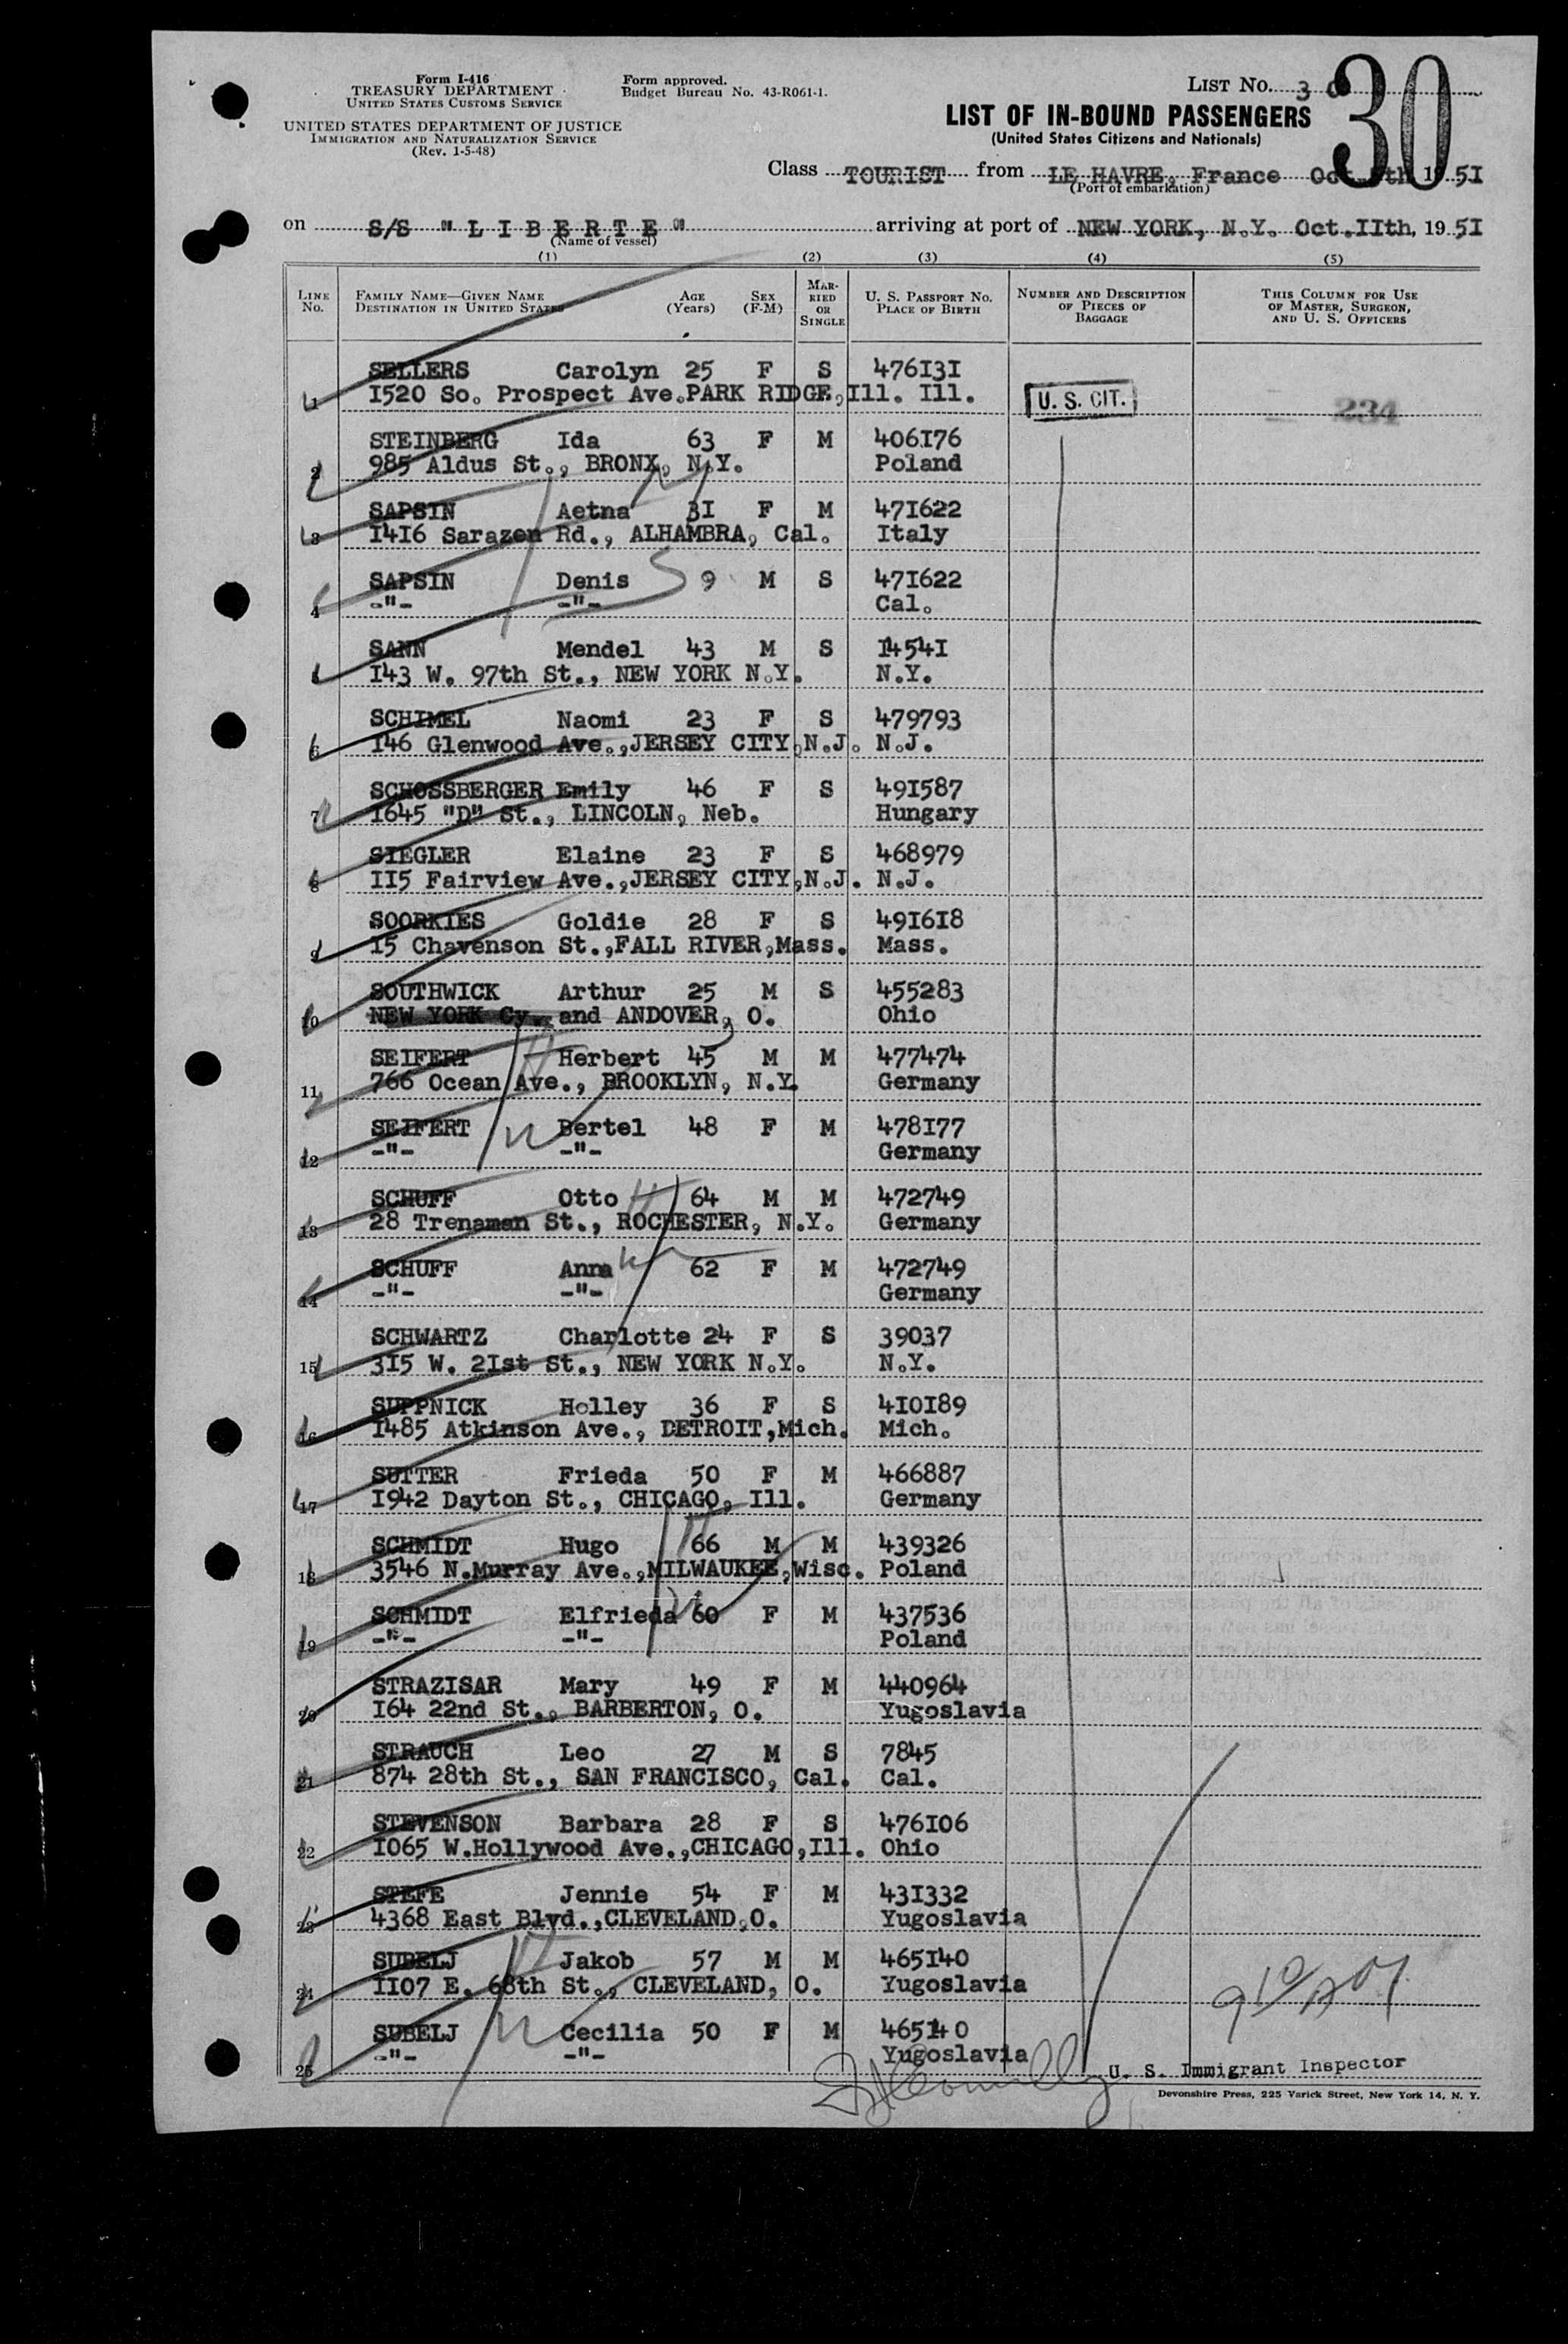 Form I-416
TREASURY DEPARTMENT
UNITED STATES CUSTOMS SERVICE
UNITED STATES DEPARTMENT OF JUSTICE
IMMIGRATION AND NATURALIZATION SERVICE
(Rev. 1-5-48)
Form approved.
Budget Bureau No. 43-R061-1.
LIST No. 30
30
LIST OF IN-BOUND PASSENGERS
(United States Citizens and Nationals)
Class TOURIST from LE HAVRE, France Oct. 1951
(Port of embarkation)
on S/S "LIBERTE" arriving at port of NEW YORK, N.Y. Oct.IIth, 1951
(Name of vessel)
(1) (2) (3) (4) (5)
LINE No. FAMILY NAME—GIVEN NAME DESTINATION IN UNITED STATES AGE (Years) SEX (F-M) MARRIED OR SINGLE U. S. PASSPORT NO. PLACE OF BIRTH NUMBER AND DESCRIPTION OF PIECES OF BAGGAGE THIS COLUMN FOR USE OF MASTER, SURGEON, AND U. S. OFFICERS
SELLERS Carolyn 25 F S 476I3I
1 I520 So. Prospect Ave.PARK RIDGE,Ill. Ill. U. S. CIT. 234
STEINBERG Ida 63 F M 406I76
2 985 Aldus St., BRONX, N.Y. Poland
SAPSIN Aetna 3I F M 47I622
3 I4I6 Sarazen Rd., ALHAMBRA, Cal. Italy
SAPSIN Denis 9 M S 47I622
4 -"- -"- Cal.
SANN Mendel 43 M S I454I
I43 W. 97th St., NEW YORK N.Y. N.Y.
SCHIMEL Naomi 23 F S 479793
6 I46 Glenwood Ave.,JERSEY CITY,N.J. N.J.
SCHOSSBERGER Emily 46 F S 49I587
7 I645 "D" St., LINCOLN, Neb. Hungary
SIEGLER Elaine 23 F S 468979
8 II5 Fairview Ave.,JERSEY CITY,N.J. N.J.
SOORKIES Goldie 28 F S 49I6I8
9 I5 Chavenson St.,FALL RIVER,Mass. Mass.
SOUTHWICK Arthur 25 M S 455283
10 NEW YORK Cy. and ANDOVER, O. Ohio
SEIFERT Herbert 45 M M 477474
11 766 Ocean Ave., BROOKLYN, N.Y. Germany
SEIFERT Bertel 48 F M 478I77
12 -"- -"- Germany
SCHUFF Otto 64 M M 472749
13 28 Trenaman St., ROCHESTER, N.Y. Germany
SCHUFF Anna 62 F M 472749
14 -"- -"- Germany
SCHWARTZ Charlotte 24 F S 39037
15 3I5 W. 2Ist St., NEW YORK N.Y. N.Y.
SUPPNICK Holley 36 F S 4I0I89
16 I485 Atkinson Ave., DETROIT,Mich. Mich.
SUTTER Frieda 50 F M 466887
17 I942 Dayton St., CHICAGO, Ill. Germany
SCHMIDT Hugo 66 M M 439326
18 3546 N.Murray Ave.,MILWAUKEE,Wisc. Poland
SCHMIDT Elfrieda 60 F M 437536
19 -"- -"- Poland
STRAZISAR Mary 49 F M 440964
20 I64 22nd St., BARBERTON, O. Yugoslavia
STRAUCH Leo 27 M S 7845
21 874 28th St., SAN FRANCISCO, Cal. Cal.
STEVENSON Barbara 28 F S 476I06
22 I065 W.Hollywood Ave.,CHICAGO,Ill. Ohio
STEFE Jennie 54 F M 43I332
23 4368 East Blvd.,CLEVELAND,O. Yugoslavia
SUBELJ Jakob 57 M M 465I40
24 II07 E. 68th St., CLEVELAND, O. Yugoslavia
SUBELJ Cecilia 50 F M 465I40
25 -"- -"- Yugoslavia
U. S. Immigrant Inspector
Devonshire Press, 225 Varick Street, New York 14, N. Y.